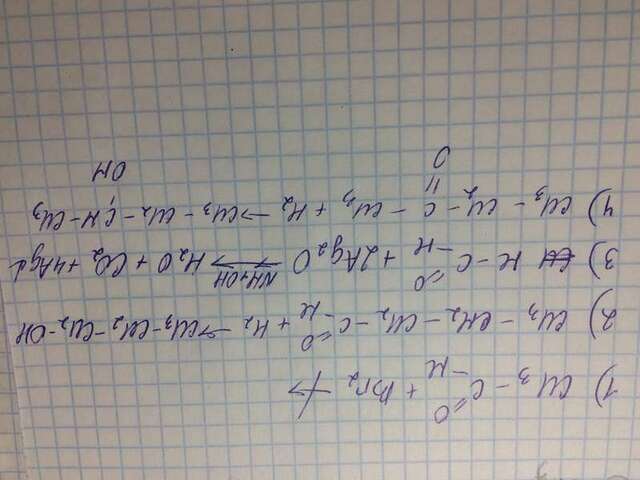 1) CH3 - C =O -H + Br2 ↛
2) CH3 - CH2 - CH2 - C =O -H + H2 → CH3-CH2-CH2-OH
3) H - C =O -H + 2Ag2O NH4OH → H2O + CO2 + 4Ag↓
4) CH3 - CH2 - C - CH3 + H2 → CH3 - CH2 - CH - CH3
O OH